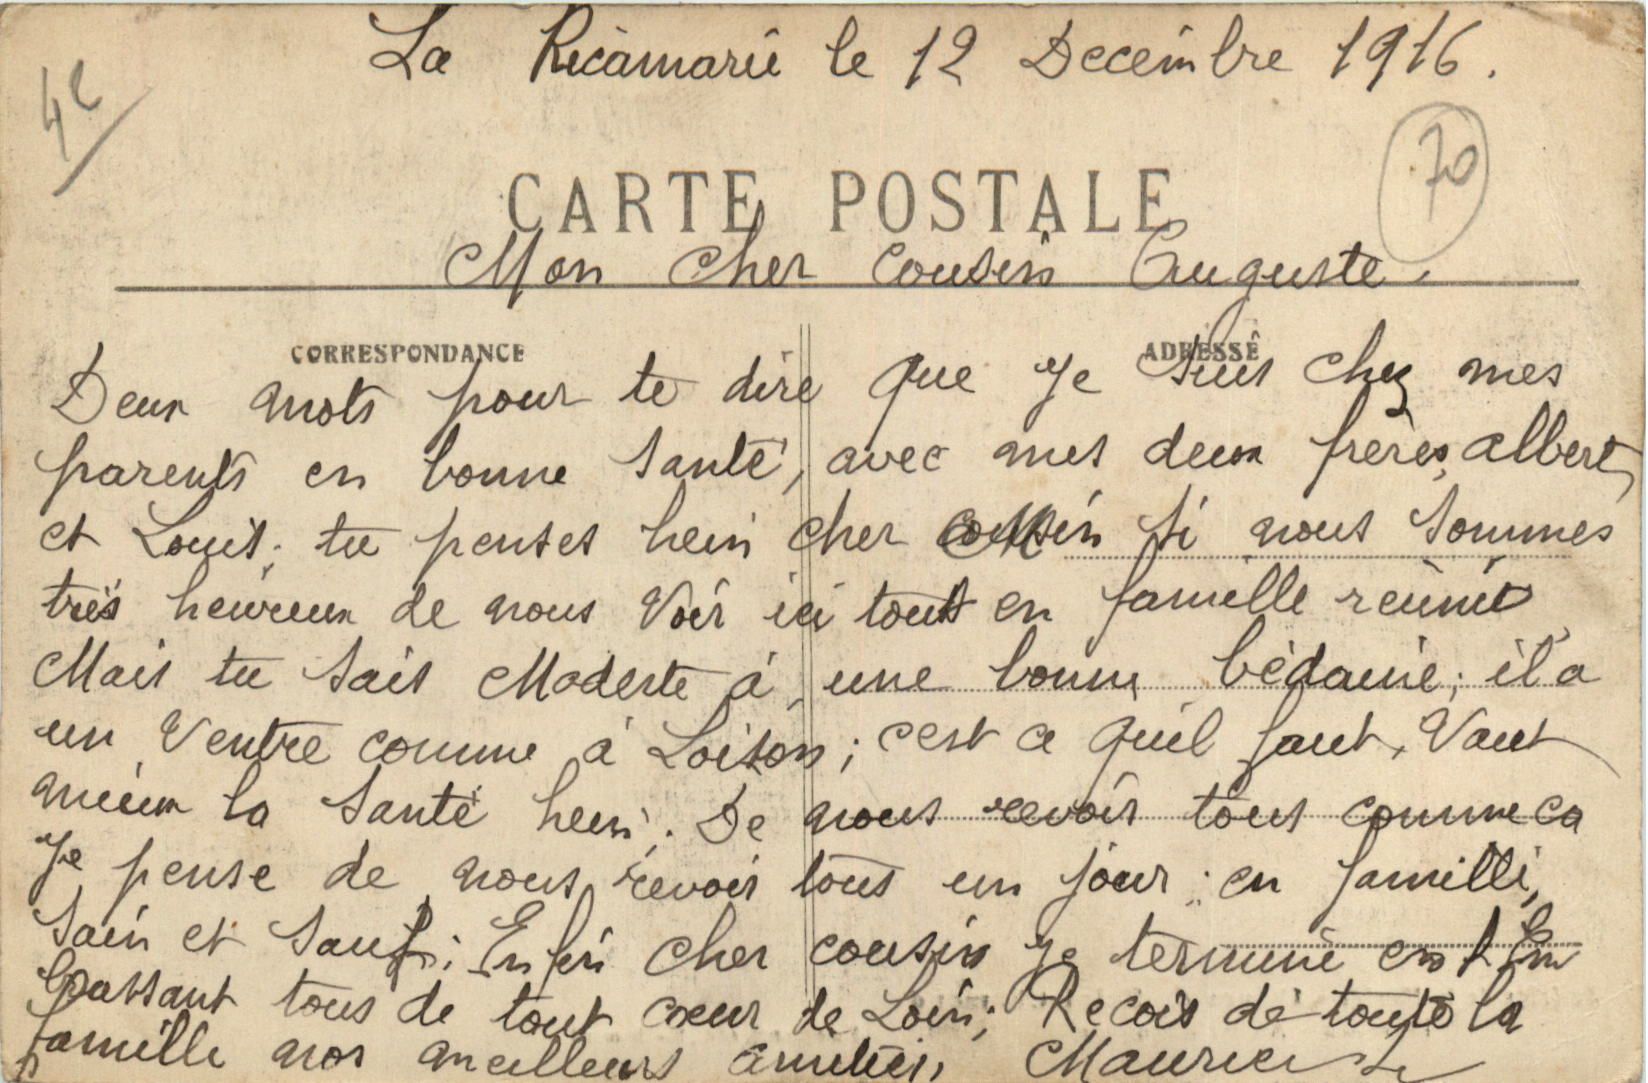 La Ricamarie le 12 Decembre 1916.
4e
70
CARTE POSTALE
Mon cher cousin Auguste.
CORRESPONDANCE
ADRESSE
Deux mots pour te dire que je suis chez mes
parents en bonne santé, avec mes deux frères, albert,
et Louis; tu penses hein cher cousin si nous sommes
très heureux de nous voir ici tous en famille réunie
Mais tu sais Modeste à une bonne bédaine; il a
un ventre comme à Loison; c'est ce quil faut, vaut
mieux la santé hein; De nous revoir tous comme ca
je pense de nous revoir tous un jour; en famille,
sain et sauf; Enfin cher cousin je termine en t'em
brassant tous de tout cœur de Loin; Recois de toute la
famille nos meilleurs amitiés, Maurice